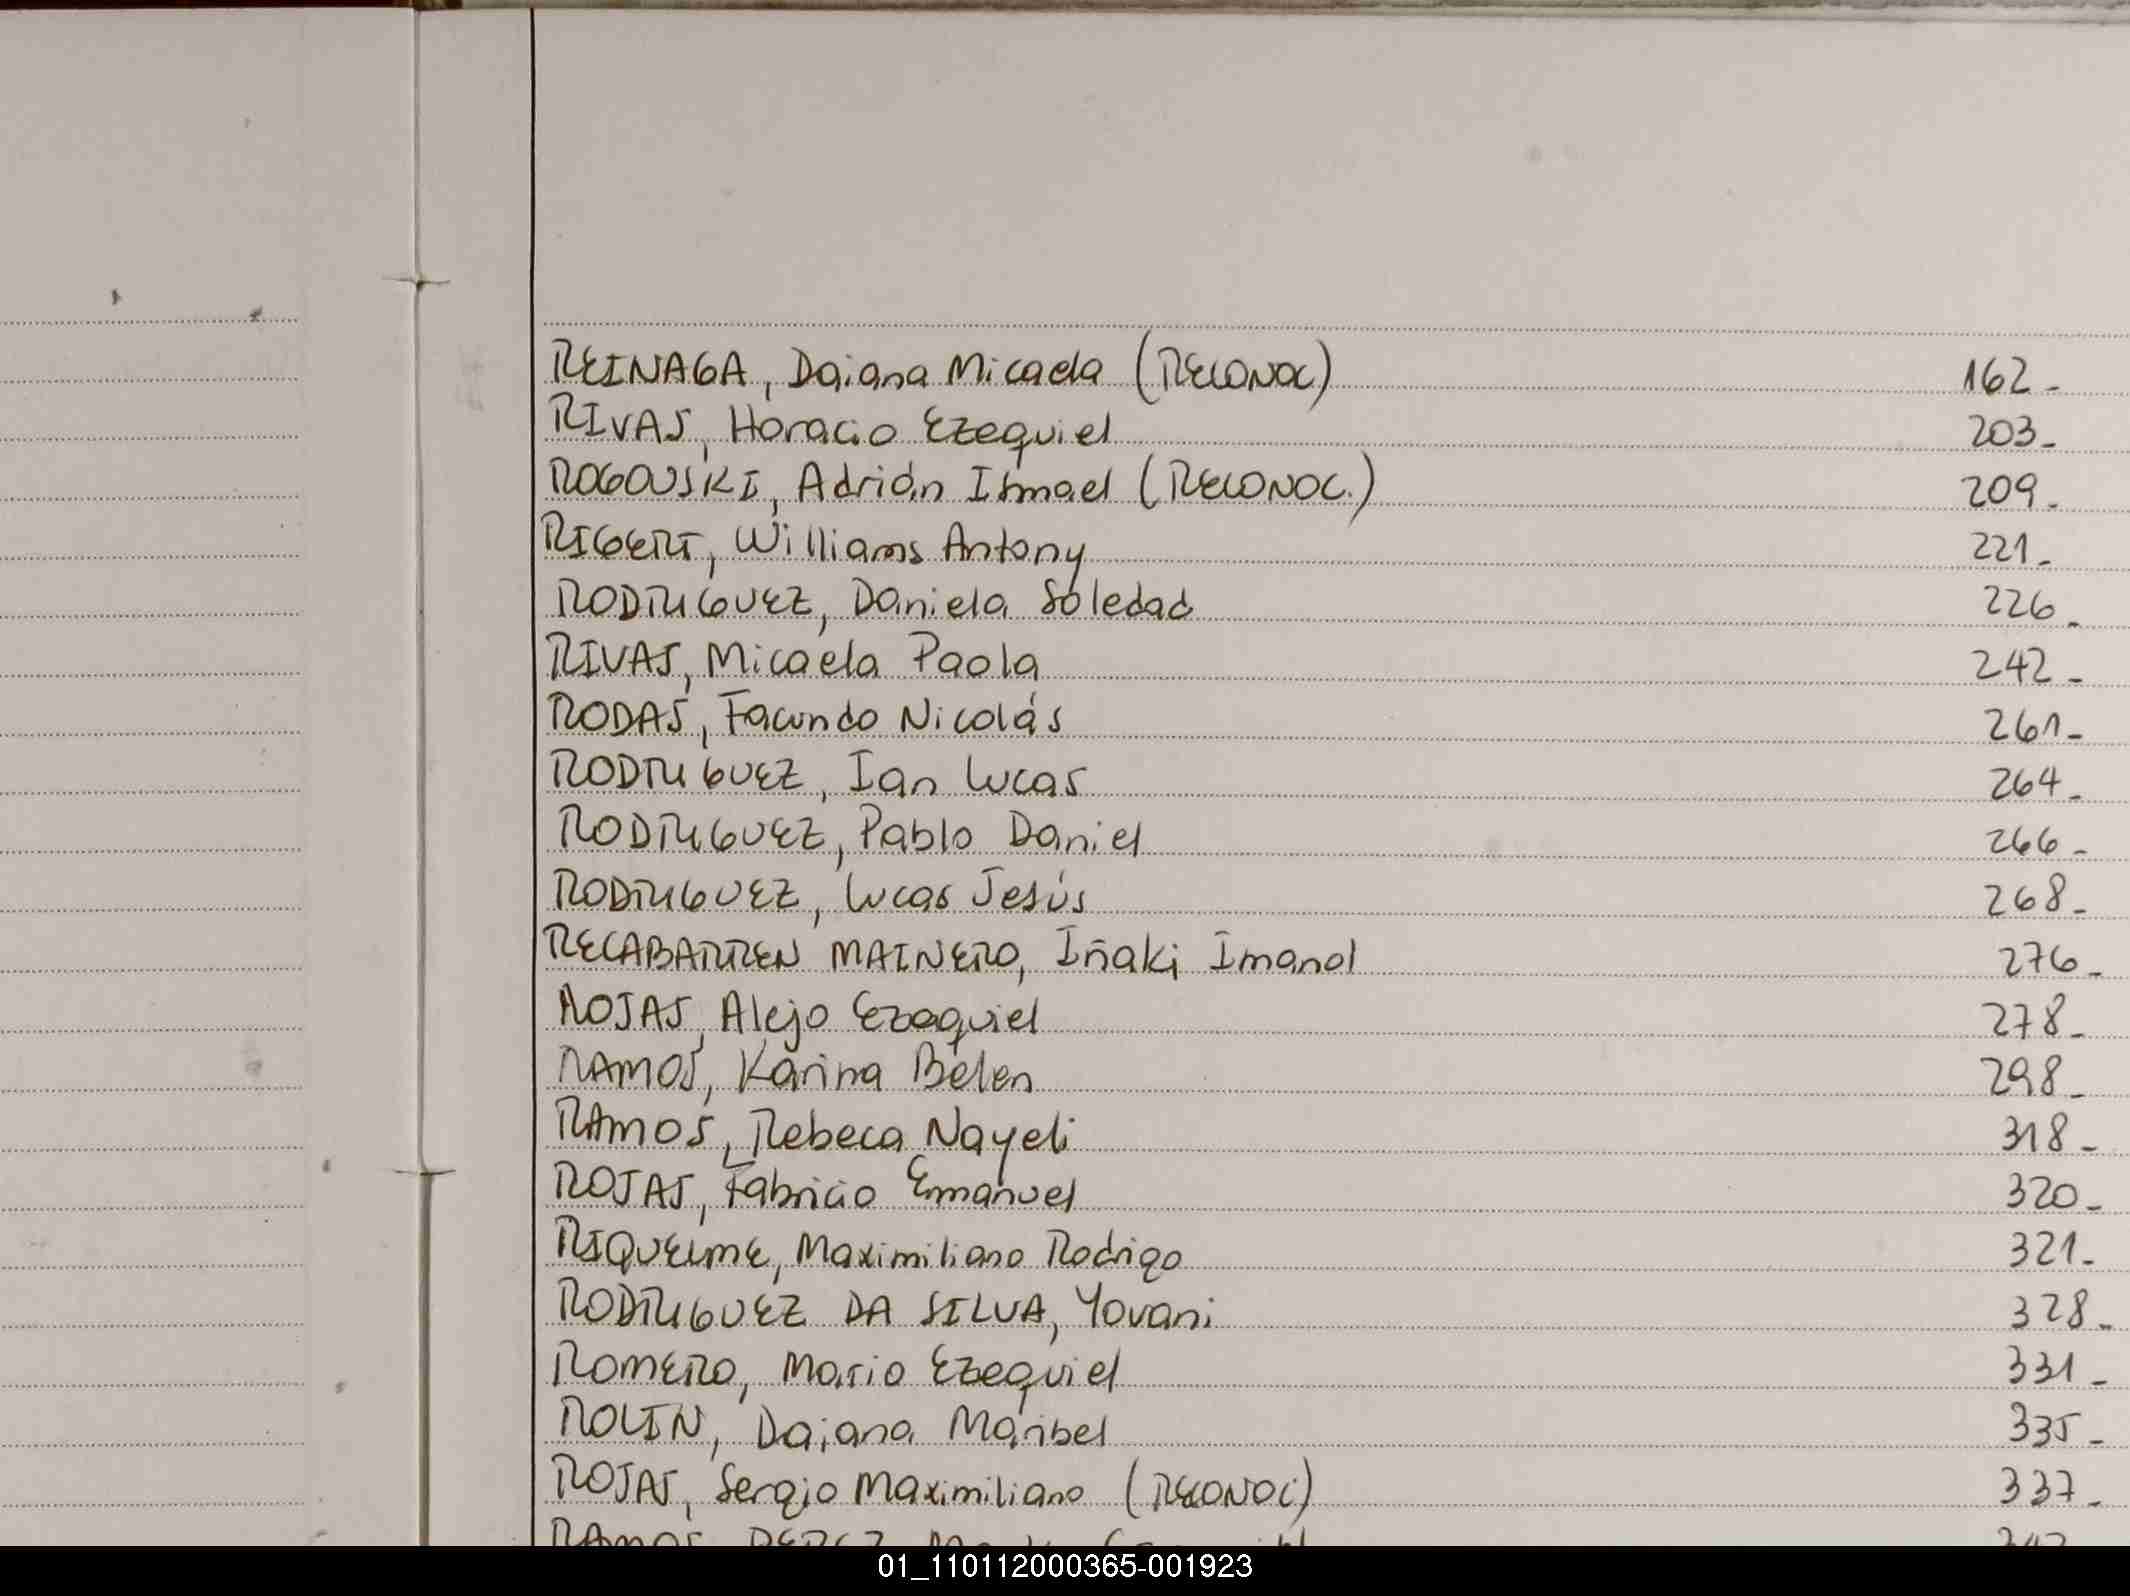 REINAGA, Daiana Micaela (RECONOC) 162-
RIVAS, Horacio Ezequiel 203-
ROGOUSKI, Adrián Ismael (RECONOC.) 209-
RIGERT, Williams Antony 221-
RODRIGUEZ, Daniela Soledad 226-
RIVAS, Micaela Paola 242-
RODAS, Facundo Nicolás 261-
RODRIGUEZ, Ian Lucas 264-
RODRIGUEZ, Pablo Daniel 266-
RODRIGUEZ, Lucas Jesús 268-
RECABARREN MAINERO, Iñaki Imanol 276-
ROJAS, Alejo Ezequiel 278-
RAMOS, Karina Belen 298-
RAMOS, Rebeca Nayeli 318-
ROJAS, Fabricio Emanuel 320-
RIQUELME, Maximiliano Rodrigo 321-
RODRIGUEZ DA SILVA, Yovani 328-
ROMERO, Mario Ezequiel 331-
ROLIN, Daiana Maribel 335-
ROJAS, Sergio Maximiliano (RECONOC) 337-
RAMOS PEREZ
01_110112000365-001923